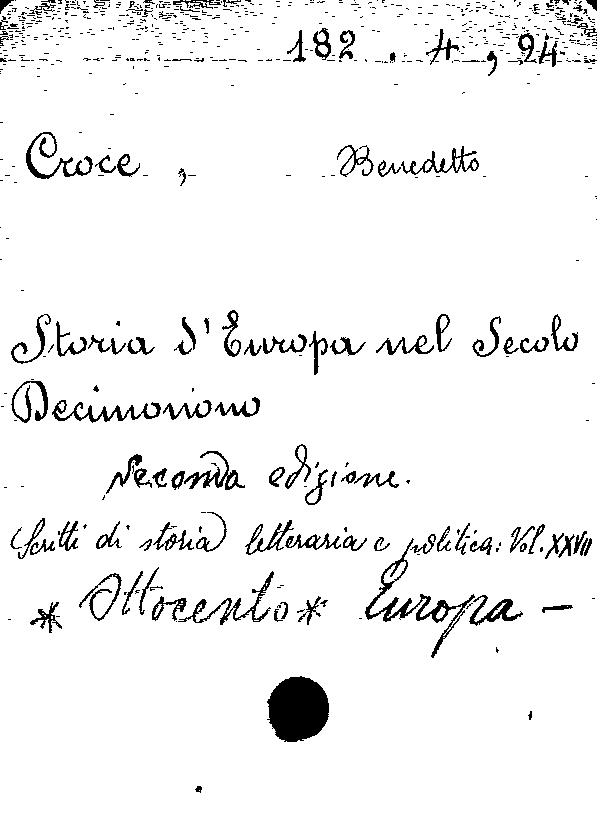 182 . 4 , 94
Croce , Benedetto
Storia d'Europa nel Secolo
Decimonono
Seconda edizione.
Scritti di storia letteraria e politica: Vol. XXVII
* Ottocento * Europa –